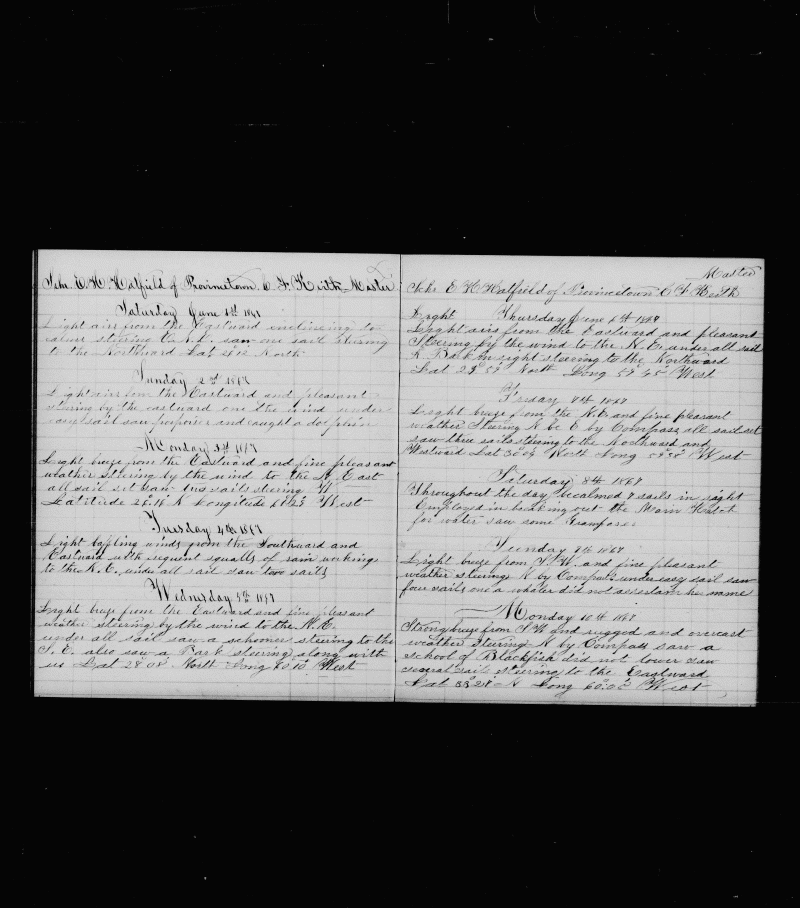 Schr. E. H. Hatfield of Provincetown C F Keith Master
Saturday June 1st 1867
Light airs from the Eastward inclining to
calm steering saw one sail steering
to the Northward Lat North
Sunday 2nd 1867
Light airs from the Eastward and pleasant
steering by the eastward one the wind under
easy sail saw porpoises and caught a dolphin
Monday 3rd 1867
Light breeze from the Eastward and fine pleasant
weather steering by the wind to the N. East
all sail set saw two sails steering W
Latitude N Longitude West
Tuesday 4th 1867
Light baffling winds from the Southward and
Eastward with frequent squalls of rain working
to the N. E. under all sail saw two sails
Wednesday 5th 1867
Light breeze from the Eastward and fine pleasant
weather steering by the wind to the N. E.
under all sail saw a schooner steering to the
S. E. also saw a Bark steering along with
us Lat 28 08 North Long 60 10 West
Master
Schr E H Hatfield of Provincetown C F Keith
Light Thursday June 6th 1867
Light airs from the Eastward and pleasant
Steering by the wind to the N. E. under all sail
A Bark in sight steering to the Northward
Lat 29° 59 North Long 59° 45 West
Friday 7th 1867
Light breeze from the N. E. and fine pleasant
weather Steering N by E by Compass all sail set
saw three sails steering to the Northward and
Westward Lat North Long West
Saturday 8th 1867
Throughout the day becalmed sails in sight
Employed in breaking out the Main Hatch
for water saw some Grampuses
Sunday 9th 1867
Light breeze from S. W. and fine pleasant
weather steering N by Compass under easy sail saw
four sails one a whaler did not ascertain her name
Monday 10th 1867
Strong breeze from S. W and rugged and overcast
weather Steering N by Compass saw a
school of Blackfish did not lower saw
several sail steering to the Eastward
Lat 33° 28 N Long 60° 05 West